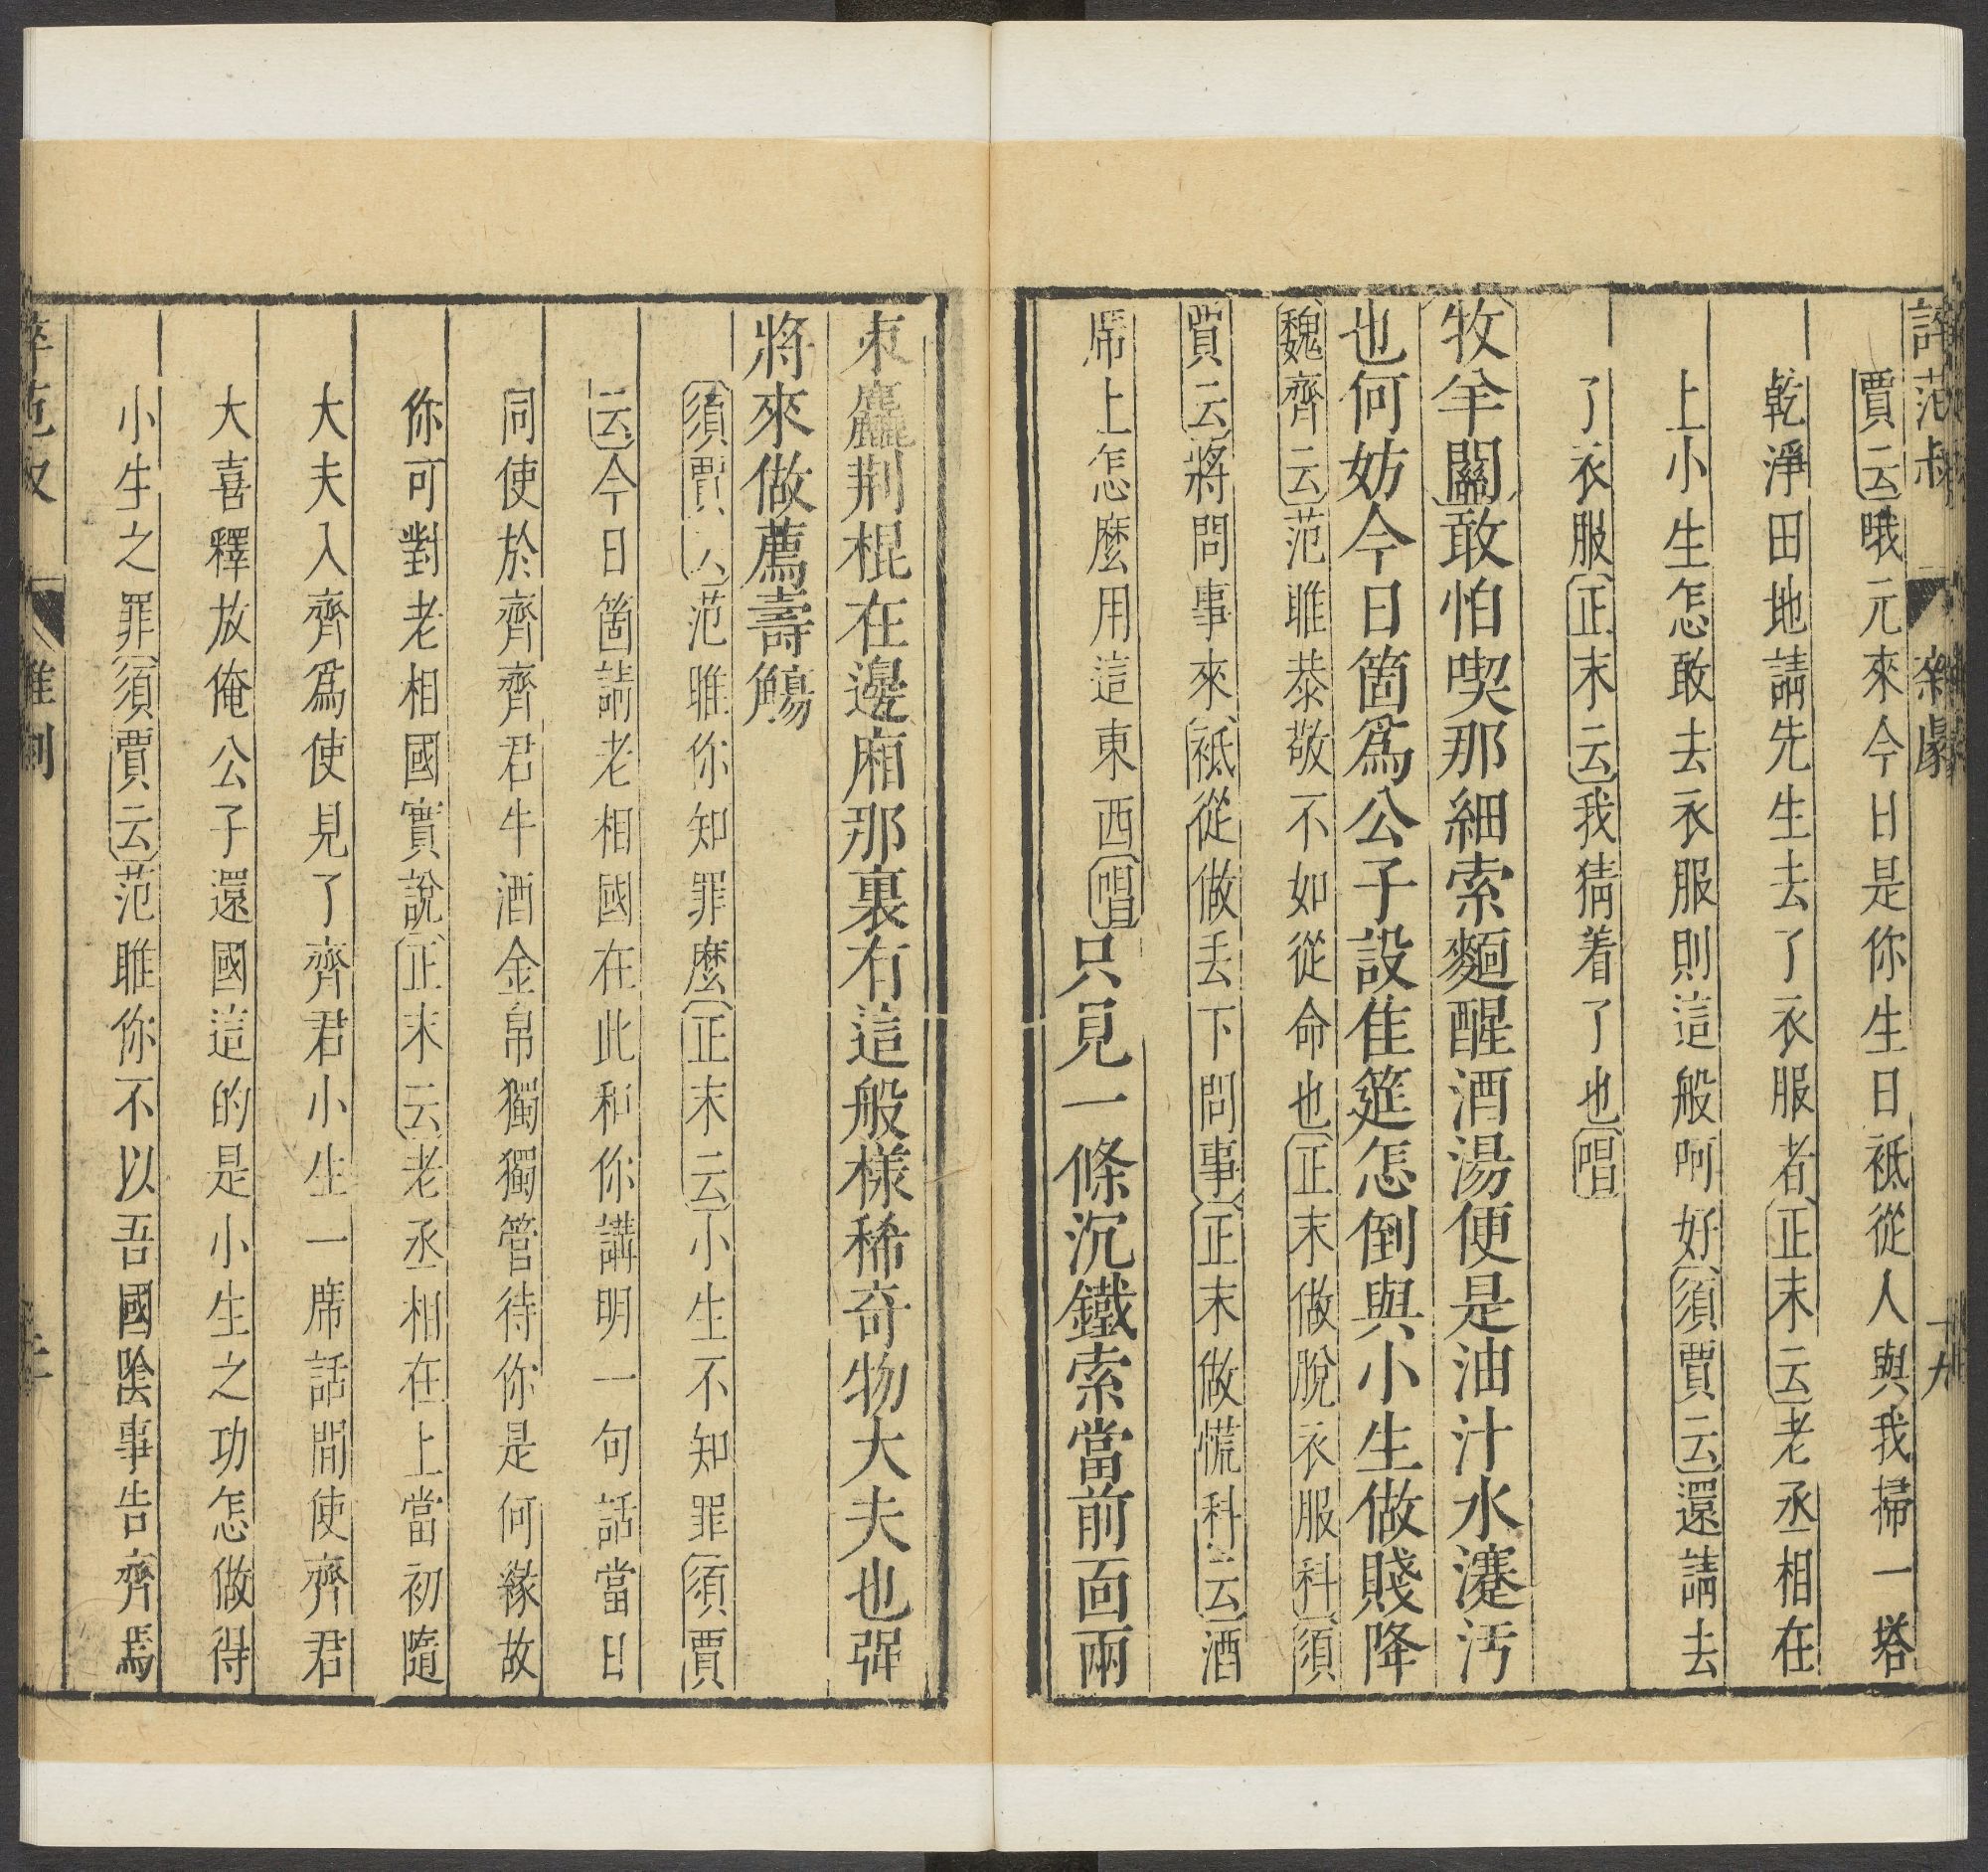 誶范叔 雜劇 十九
賈云哦元來今日是你生日祗從人與我掃一塔
乾淨田地請先生去了衣服者正末云老丞相在
上小生怎敢去衣服則這般呵好須賈云還請去
了衣服正末云我猜着了也唱
牧羊關敢怕喫那細索麵醒酒湯便是油汁水瀽汚
也何妨今日箇爲公子設隹筵怎倒與小生做賤降
魏齊云范雎恭敬不如從命也正末做脫衣服科須
賈云將問事來祗從做丢下問事正末做慌科云酒
席上怎麼用這東西唱只見一條沉鐵索當前面兩
束麤荆棍在邊廂那裏有這般樣稀奇物大夫也弶
將來做薦壽觴
須賈云范雎你知罪麼正末云小生不知罪須賈
云今日箇請老相國在此和你講明一句話當日
同使於齊齊君牛酒金帛獨獨管待你是何緣故
你可對老相國實說正末云老丞相在上當初隨
大夫入齊爲使見了齊君小生一席話間使齊君
大喜釋放俺公子還國這的是小生之功怎做得
小生之罪須賈云范雎你不以吾國陰事告齊焉
誶范叔 雜劇